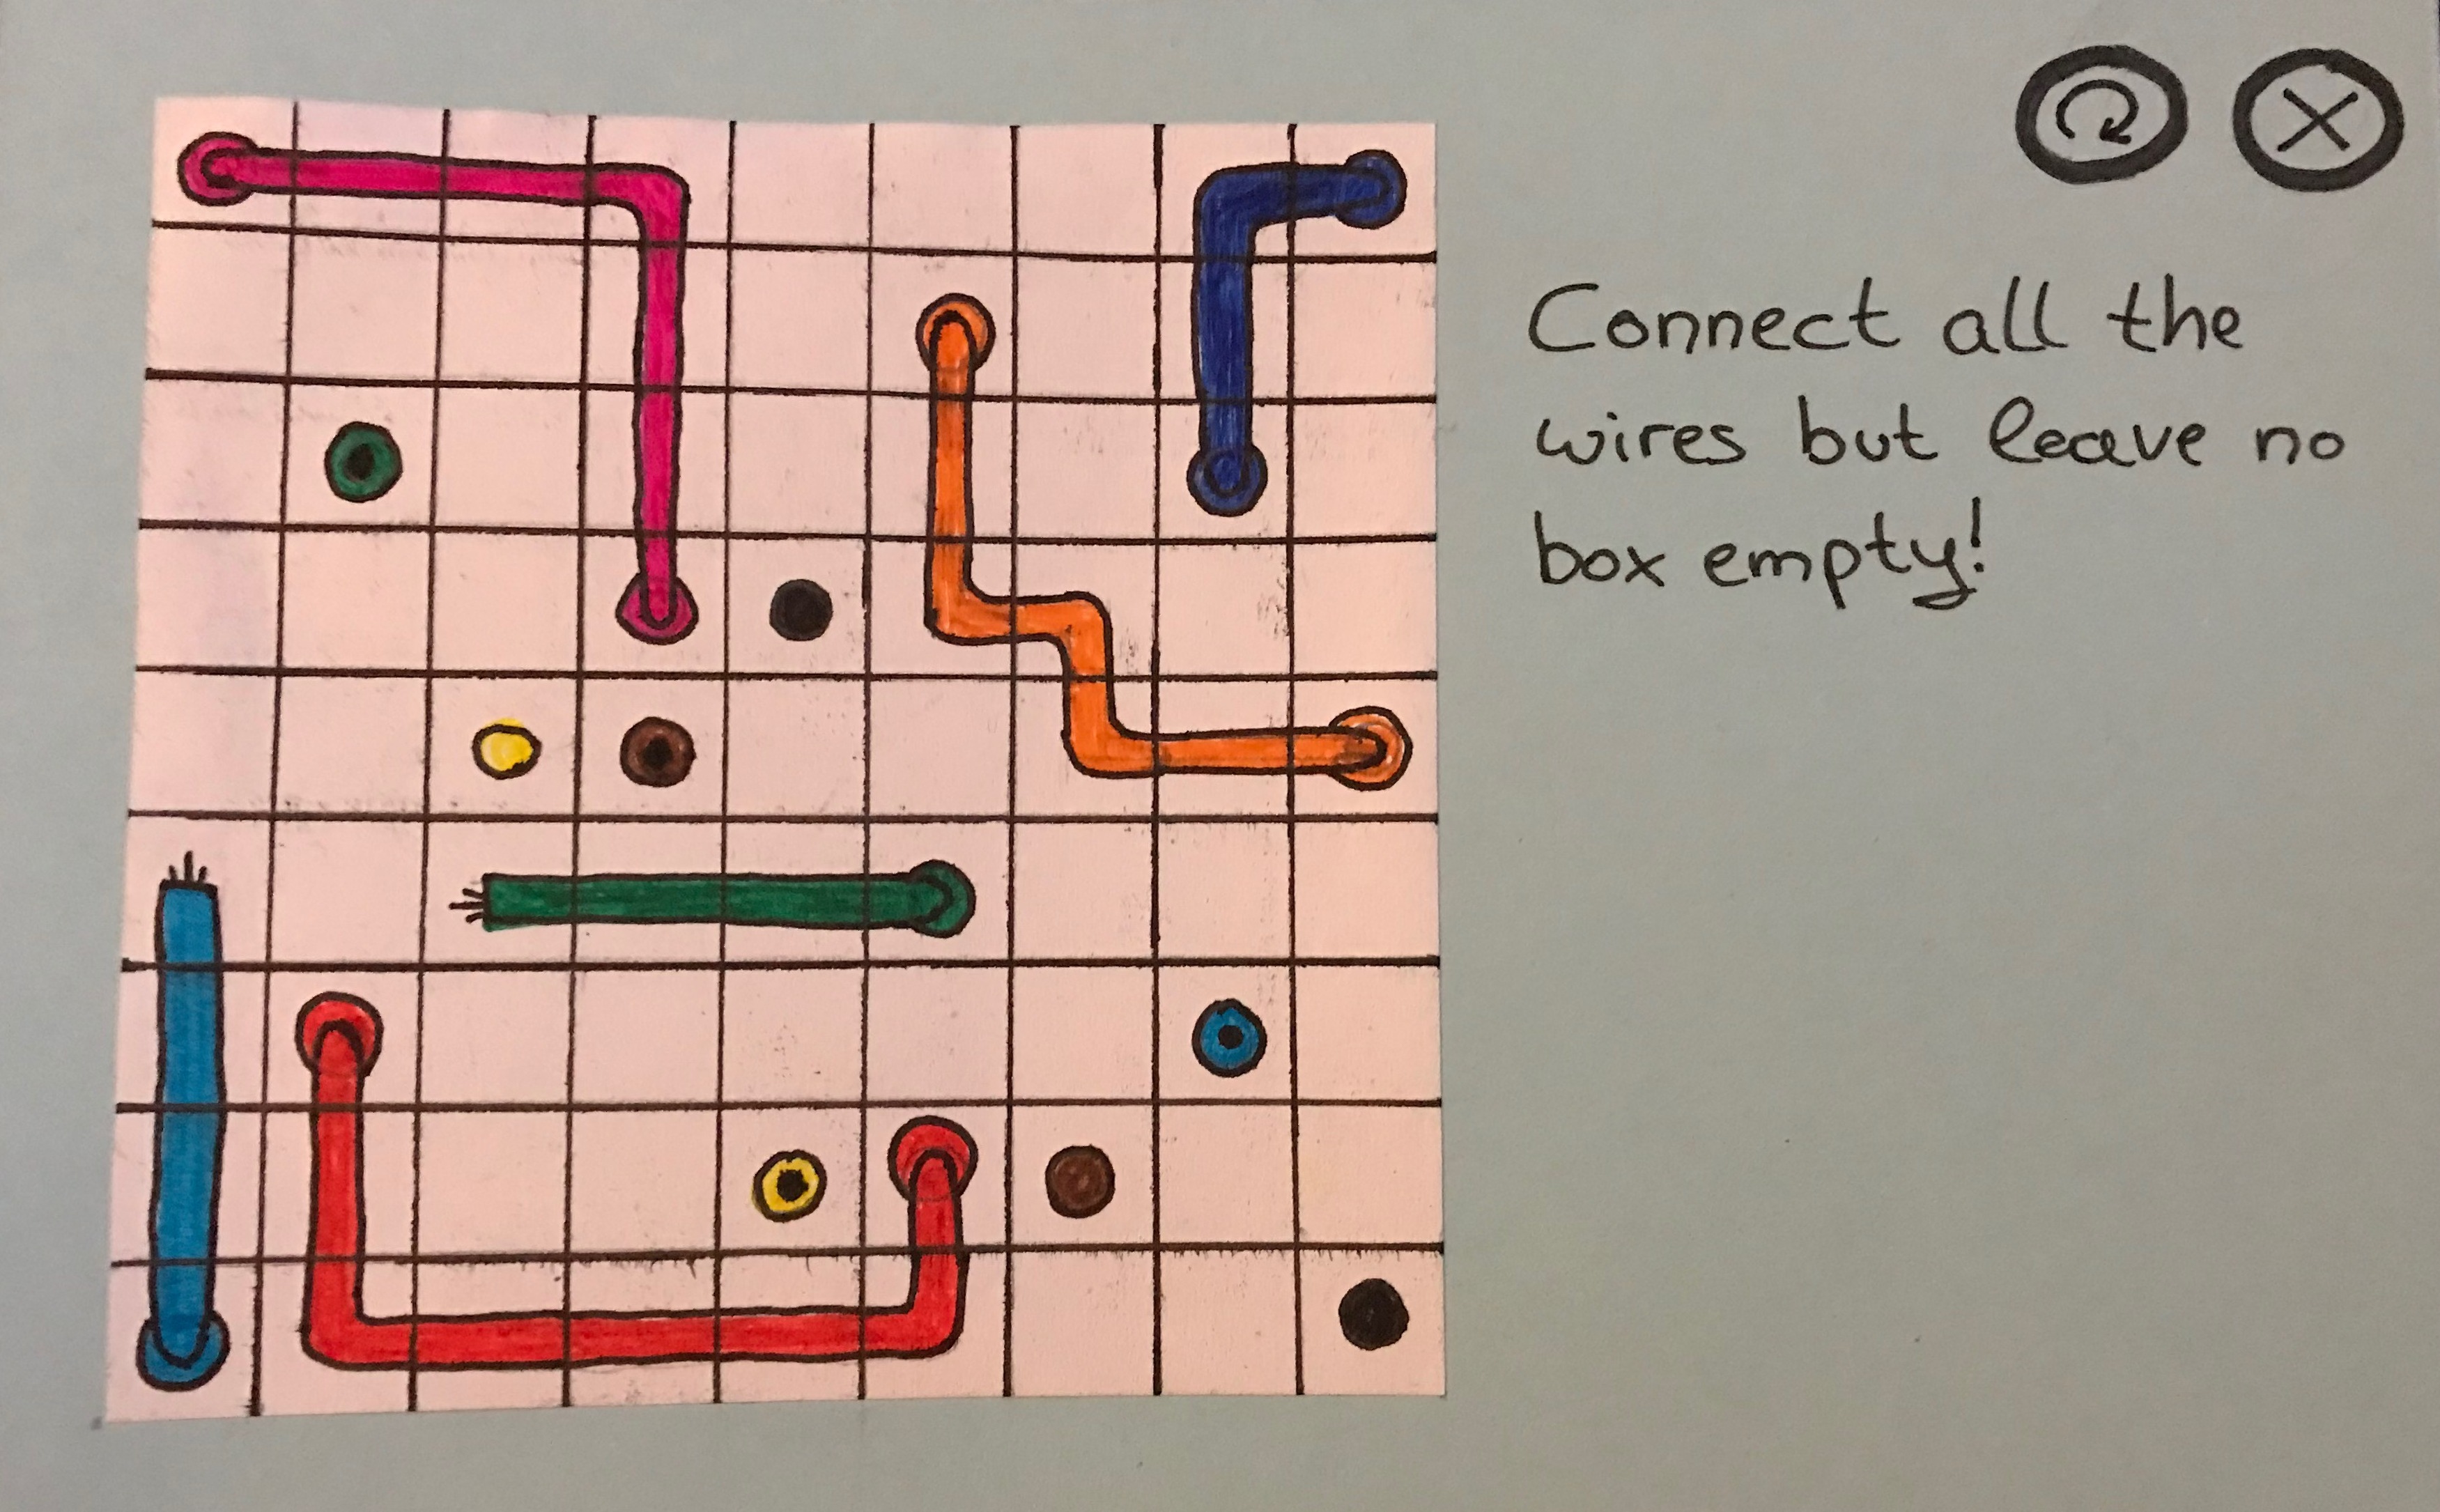 Connect all the
wires but leave no
box empty!